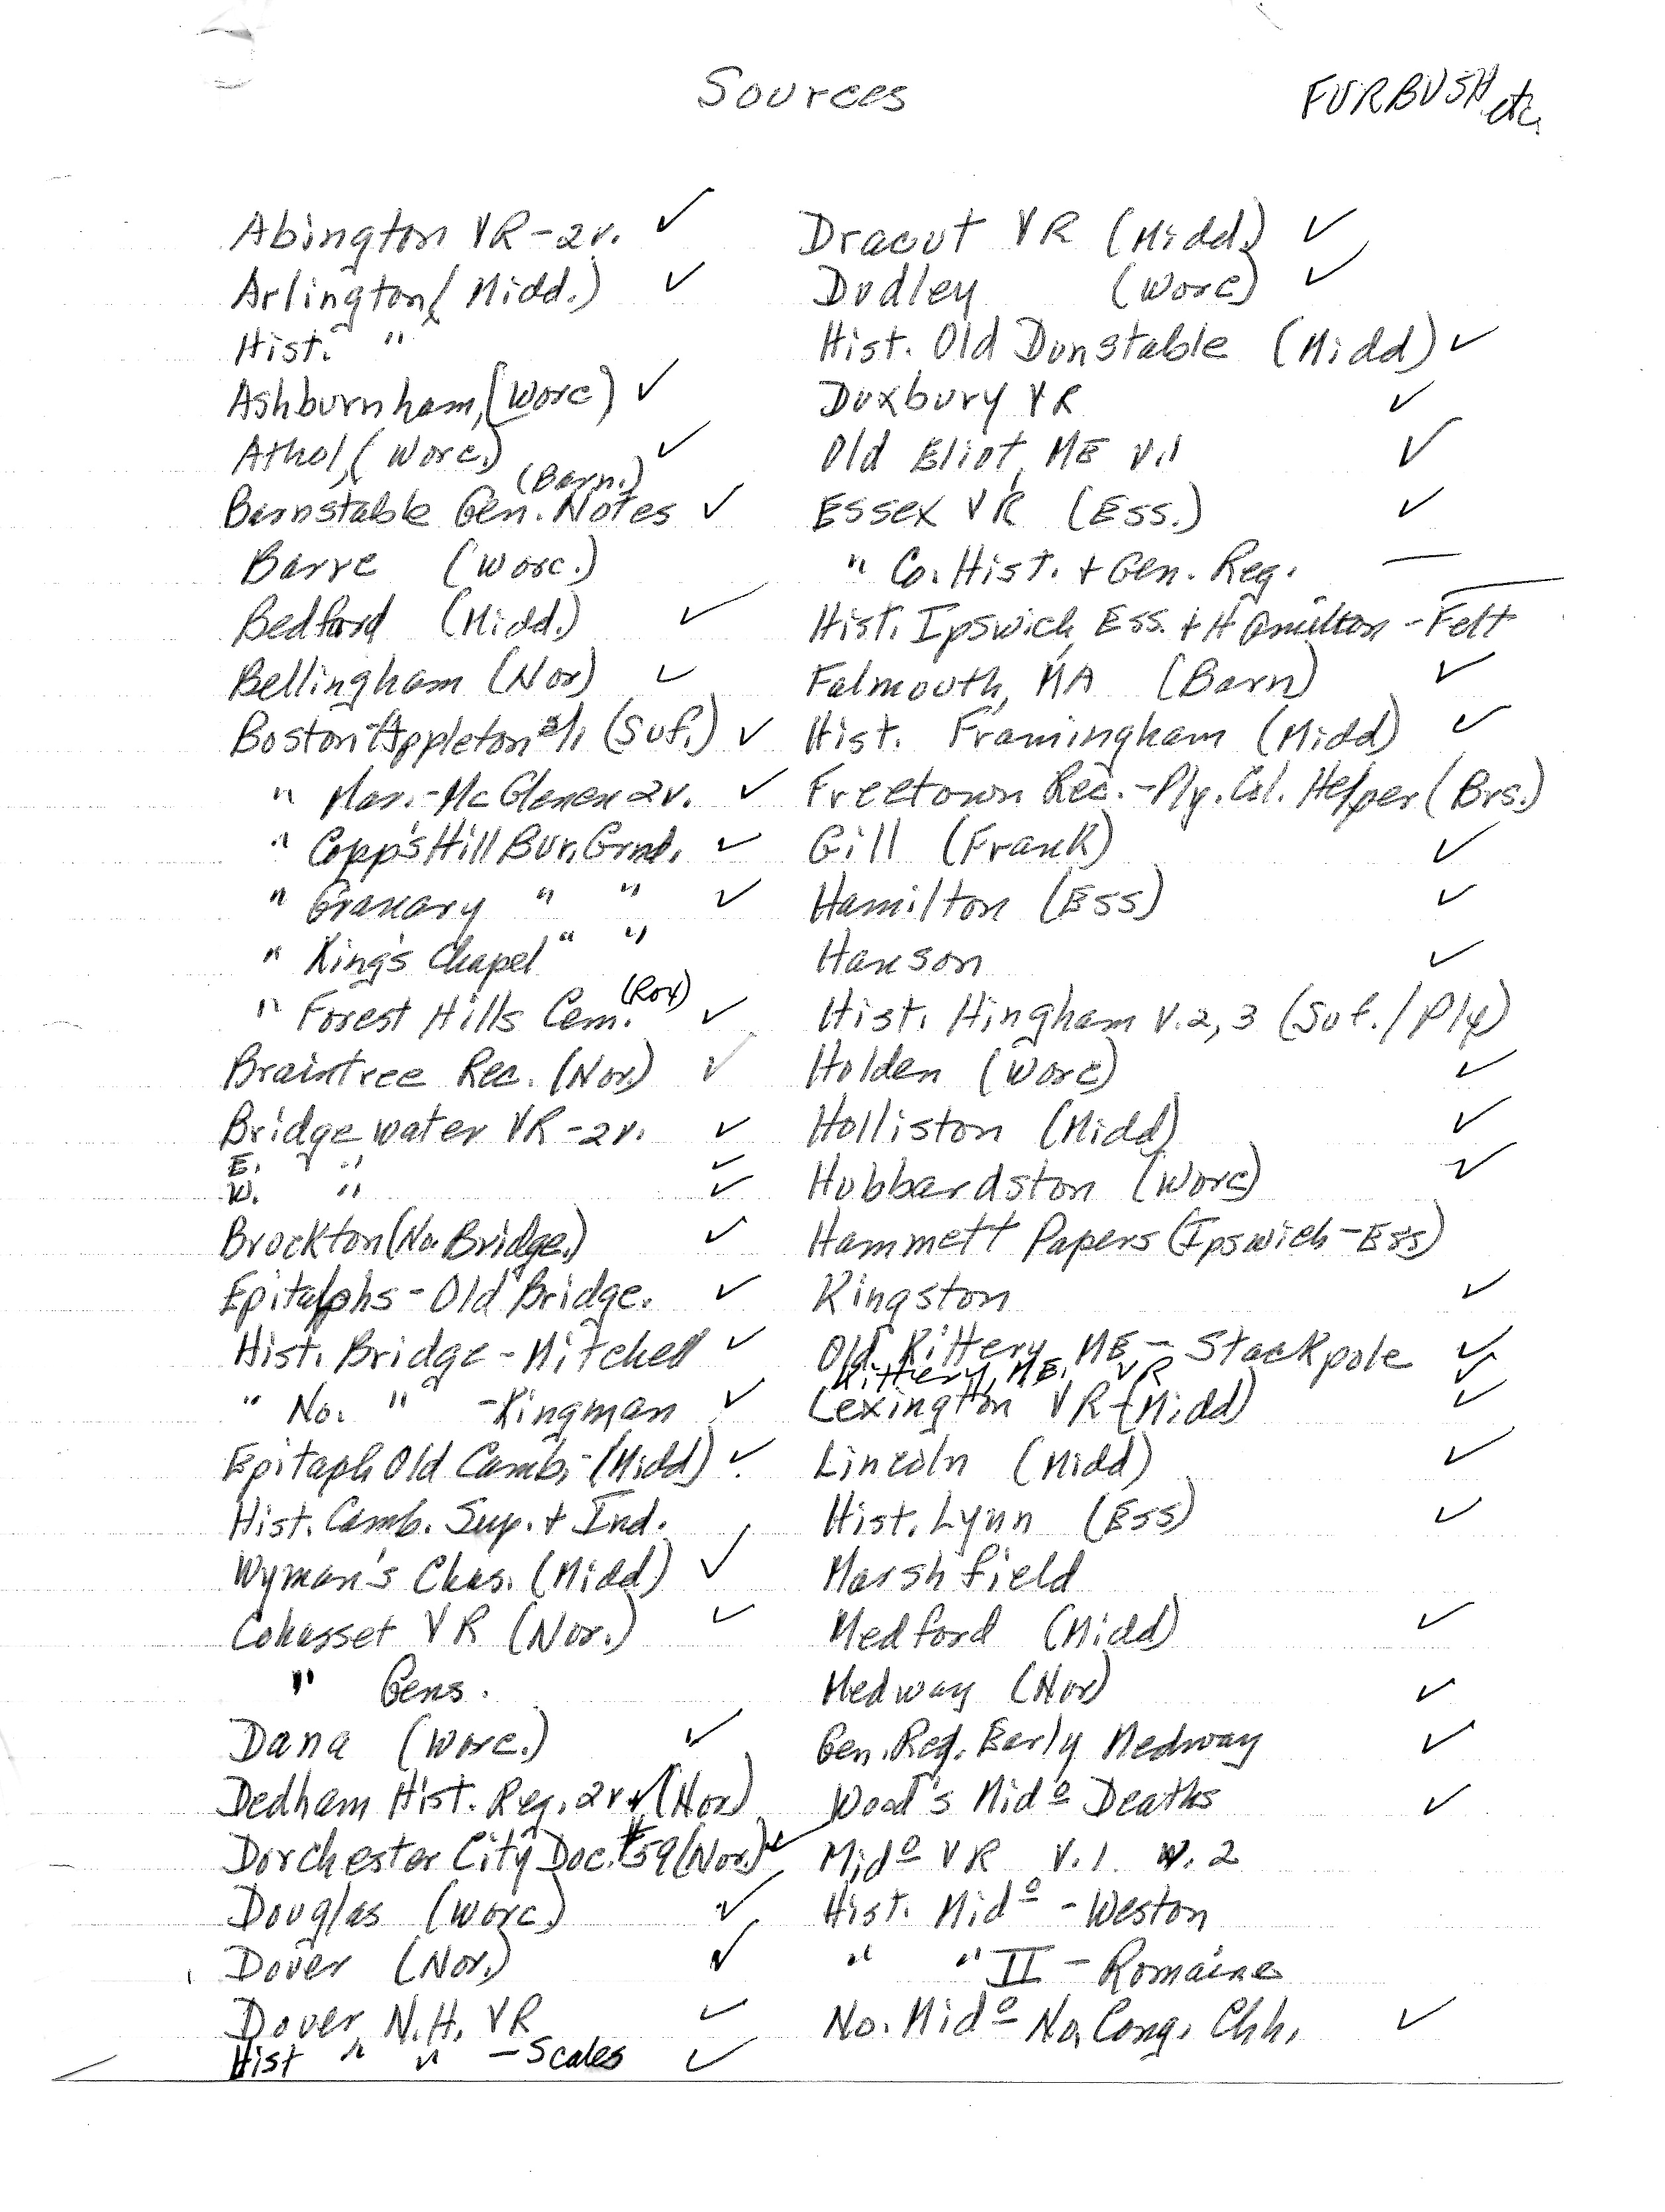 Sources
FURBUSH etc.
Abington VR - 2v. ✓
Arlington (Midd.) ✓
Hist. "
Ashburnham, (Worc) ✓
Athol, (Worc.) ✓
(Barn.)
Barnstable Gen. Notes ✓
Barre (Worc.)
Bedford (Midd.) ✓
Bellingham (Nor) ✓
Boston - Appleton (Suf.) ✓
" Mar. - McGlenen 2v. ✓
" Copp's Hill Bur. Grnd. ✓
" Granary " " ✓
" King's Chapel " "
" Forest Hills Cem. (Rox) ✓
Braintree Rec. (Nor.) ✓
Bridgewater VR - 2v. ✓
E. " ✓
W. " ✓
Brockton (No. Bridge.) ✓
Epitaphs - Old Bridge. ✓
Hist. Bridge - Mitchell ✓
" No. " - Kingman ✓
Epitaph Old Camb. - (Midd) ✓
Hist. Camb. Sup. + Ind.
Wyman's Chas. (Midd) ✓
Cohasset VR (Nor.) ✓
" Gens.
Dana (Worc.) ✓
Dedham Hist. Reg. 2v. ✓ (Nor)
Dorchester City Doc. #59 (Nor.) ✓
Douglas (Worc.) ✓
Dover (Nor.) ✓
Dover, N.H. VR ✓
Hist " " - Scales ✓
Dracut VR (Midd.) ✓
Dudley (Worc) ✓
Hist. Old Dunstable (Midd) ✓
Duxbury VR ✓
Old Eliot, ME v.1 ✓
Essex VR (Ess.) ✓
" Co. Hist. + Gen. Reg. —
Hist. Ipswich, Ess. + Hamilton - Felt
Falmouth, MA (Barn) ✓
Hist. Framingham (Midd) ✓
Freetown Rec. - Ply. Col. Helper (Brs.)
Gill (Frank) ✓
Hamilton (Ess) ✓
Hanson ✓
Hist. Hingham v. 2, 3 (Suf. / Ply)
Holden (Worc) ✓
Holliston (Midd) ✓
Hubbardston (Worc) ✓
Hammett Papers (Ipswich - Ess)
Kingston ✓
Old Kittery, ME - Stackpole ✓
Kittery, ME. VR ✓
Lexington VR - (Midd) ✓
Lincoln (Midd) ✓
Hist. Lynn (Ess) ✓
Marshfield
Medford (Midd) ✓
Medway (Nor) ✓
Gen. Reg. Early Medway ✓
Wood's Midº Deaths ✓
Midº VR V.1. v. 2
Hist. Midº - Weston
" " II - Romaine
No. Midº No. Cong. Chh. ✓